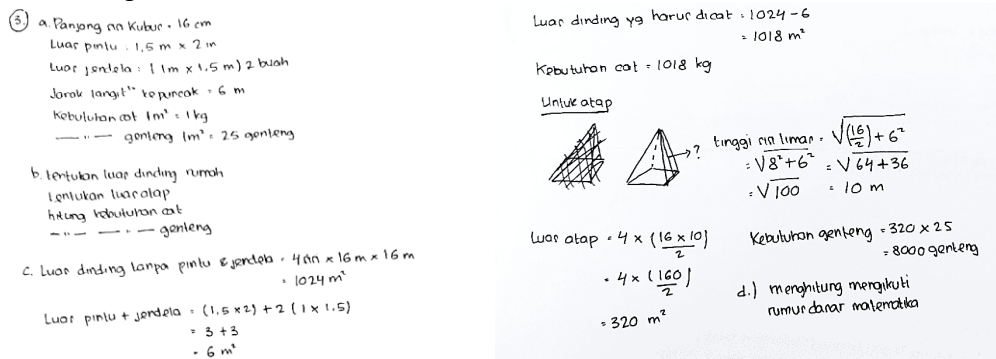 3. a. Panjang rin Kubus = 16 cm
Luas pintu = 1,5 m x 2 m
Luas jendela = (1m x 1,5 m) 2 buah
Jarak langit" ke puncak = 6 m
Kebutuhan cat 1m² = 1 kg
—— " —— genteng 1m² = 25 genteng
b. tentukan luas dinding rumah
tentukan luas atap
hitung kebutuhan cat
— " — — " — genteng
c. Luas dinding tanpa pintu & jendela = 4 rin x 16 m x 16 m
= 1024 m²
Luas pintu + jendela = (1,5 x 2) + 2 (1 x 1,5)
= 3 + 3
= 6 m²
Luas dinding yg harus dicat = 1024 - 6
= 1018 m²
Kebutuhan cat = 1018 kg
Untuk atap
?
tinggi rin limas = √(16/2) + 6²
= √8² + 6² = √64 + 36
= √100 = 10 m
Luas atap = 4 x (16 x 10)/2
= 4 x (160)/2
= 320 m²
Kebutuhan genteng = 320 x 25
= 8000 genteng
d.) menghitung mengikuti
rumus dasar matematika